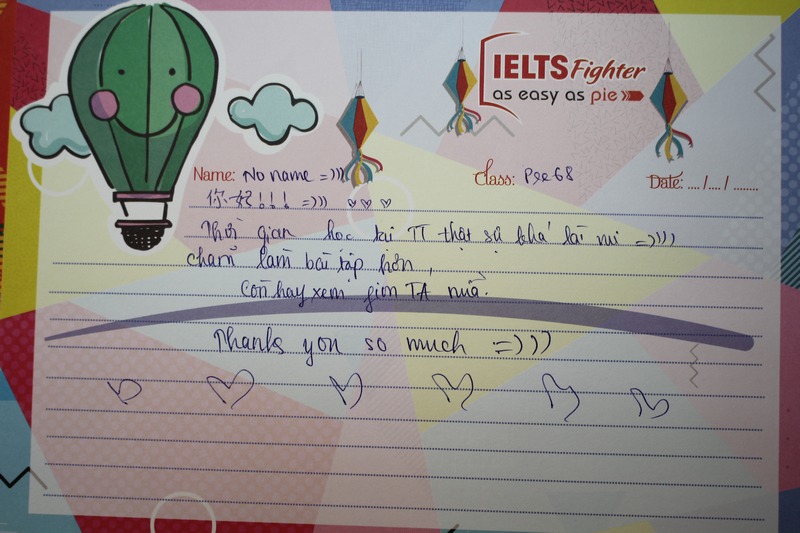 IELTS Fighter
as easy as pie
Name: No name =)))
Class: Pre 68
Date: .... /.... / ........
你好!!! =))) ♡ ♡ ♡
Thời gian học tại TT thật sự khá là =))))
chăm làm bài tập hơn,
Còn hay xem TA nữa.
Thanks you so much =)))